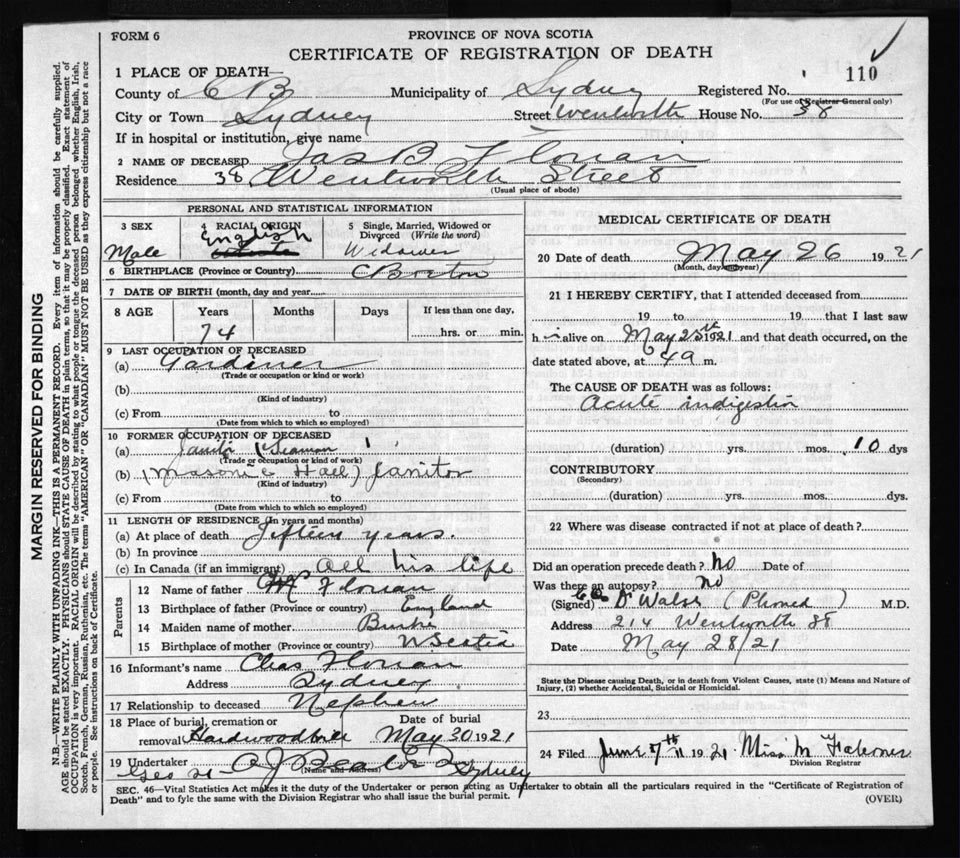 FORM 6
PROVINCE OF NOVA SCOTIA
CERTIFICATE OF REGISTRATION OF DEATH
110
1 PLACE OF DEATH—
County of C B Municipality of Sydney Registered No.
(For use of Registrar General only)
City or Town Sydney Street Wentworth House No. 38
If in hospital or institution, give name
2 NAME OF DECEASED Jas B Florian
Residence 38 Wentworth Street
(Usual place of abode)
PERSONAL AND STATISTICAL INFORMATION
3 SEX Male
4 RACIAL ORIGIN English
5 Single, Married, Widowed or Divorced (Write the word) Widower
6 BIRTHPLACE (Province or Country) C Breton
7 DATE OF BIRTH (month, day and year)
8 AGE Years Months Days If less than one day,
74 hrs. or min.
9 LAST OCCUPATION OF DECEASED
(a) Gardiner
(Trade or occupation or kind or work)
(b)
(Kind of industry)
(c) From to
(Date from which to which so employed)
10 FORMER OCCUPATION OF DECEASED
(a) Janitor (Seaman
(Trade or occupation or kind of work)
(b) (Masonic Hall) Janitor
(Kind of industry)
(c) From to
(Date from which to which so employed)
11 LENGTH OF RESIDENCE (In years and months)
(a) At place of death Fifteen years.
(b) In province
(c) In Canada (if an immigrant) All his life
Parents
12 Name of father Florian
13 Birthplace of father (Province or country) England
14 Maiden name of mother. Burke
15 Birthplace of mother (Province or country) N Scotia
16 Informant's name Chas Florian
Address Sydney
17 Relationship to deceased Nephew
18 Place of burial, cremation or removal Hardwoodhill
Date of burial May 30 1921
19 Undertaker Geo H A J Beaton Sydney
(Name and Address)
MEDICAL CERTIFICATE OF DEATH
20 Date of death May 26 19 21
(Month, day and year)
21 I HEREBY CERTIFY, that I attended deceased from
19 to 19 that I last saw
h alive on May 25th 1921 and that death occurred, on the
date stated above, at 4 a m.
The CAUSE OF DEATH was as follows:
Acute indigestion
(duration) yrs. mos. 10 dys
CONTRIBUTORY
(Secondary)
(duration) yrs. mos. dys.
22 Where was disease contracted if not at place of death?
Did an operation precede death? No Date of
Was there an autopsy? No
(Signed) Dr Walsh (Phoned) M.D.
Address 214 Wentworth St
Date May 28/21
State the Disease causing Death, or in death from Violent Causes, state (1) Means and Nature of
Injury, (2) whether Accidental, Suicidal or Homicidal.
23
24 Filed June 7th 1921 Miss M Falconer
Division Registrar
SEC. 46—Vital Statistics Act makes it the duty of the Undertaker or person acting as Undertaker to obtain all the particulars required in the "Certificate of Registration of
Death" and to fyle the same with the Division Registrar who shall issue the burial permit.
(OVER)
MARGIN RESERVED FOR BINDING
N.B.—WRITE PLAINLY WITH UNFADING INK—THIS IS A PERMANENT RECORD. Every item of information should be carefully supplied.
AGE should be stated EXACTLY. PHYSICIANS should STATE CAUSE OF DEATH in plain terms, so that it may be properly classified. Exact statement of
OCCUPATION is very important. RACIAL ORIGIN will be described by stating to what people or tongue the deceased person belonged whether English, Irish,
Scotch, French, German, Russian, Ruthenian, etc. The terms "AMERICAN" OR "CANADIAN" MUST NOT BE USED as they express citizenship but not a race
or people. See instructions on back of Certificate.